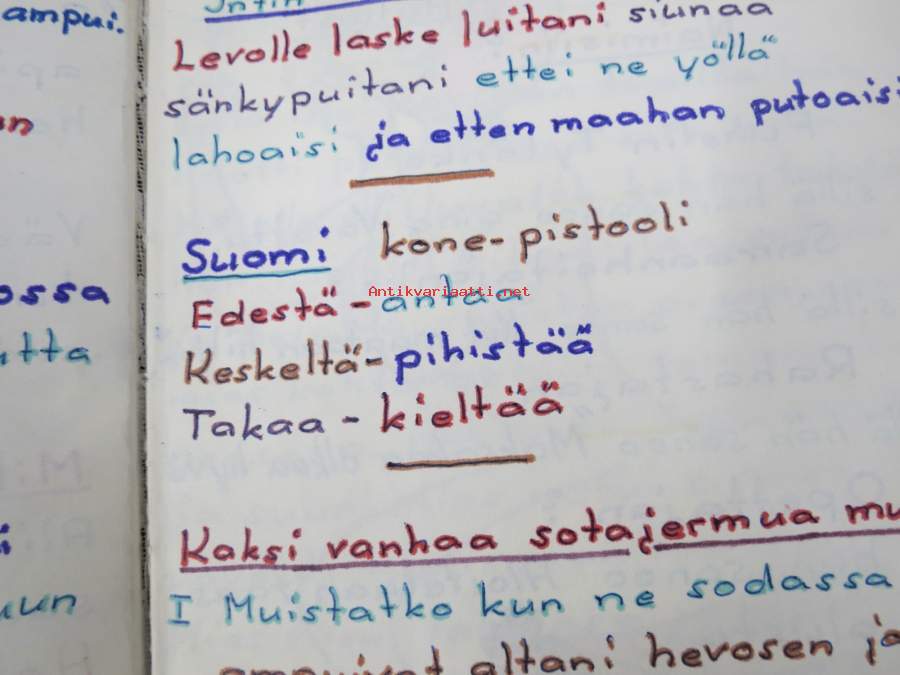 ampui.
Levolle laske luitani siunaa
sänkypuitani ettei ne yöllä
lahoaisi ja etten maahan putoaisi
Suomi kone-pistooli
Antikvariaatti.net
Edestä - antaa
Keskeltä - pihistää
Takaa - kieltää
Kaksi vanhaa sotajermua mu
I Muistatko kun ne sodassa
ampuivat altani hevosen ja